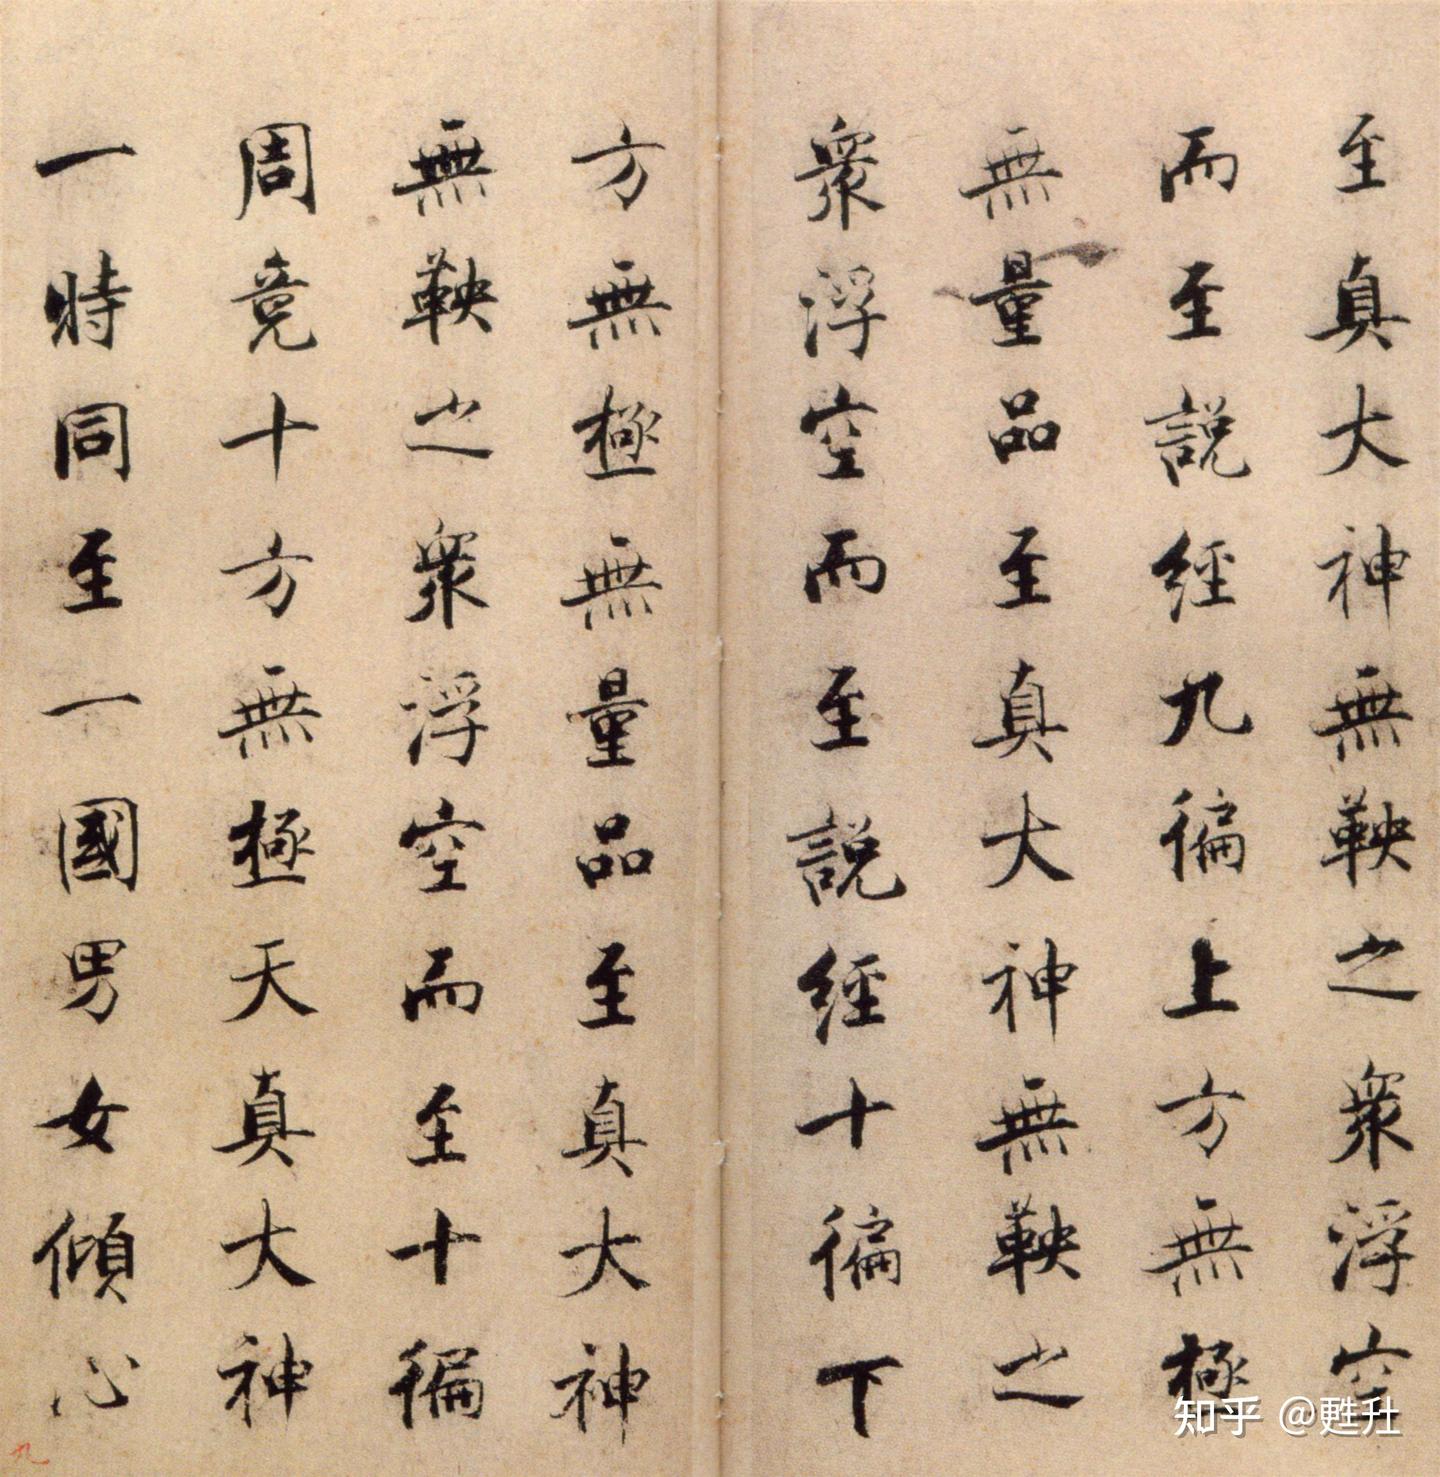 至真大神無鞅之衆浮空
而至説經九徧上方無極
無量品至真大神無鞅之
衆浮空而至説經十徧下
方無極無量品至真大神
無鞅之衆浮空而至十徧
周竟十方無極天真大神
一時同至一國男女傾心
九
知乎 @甦廾